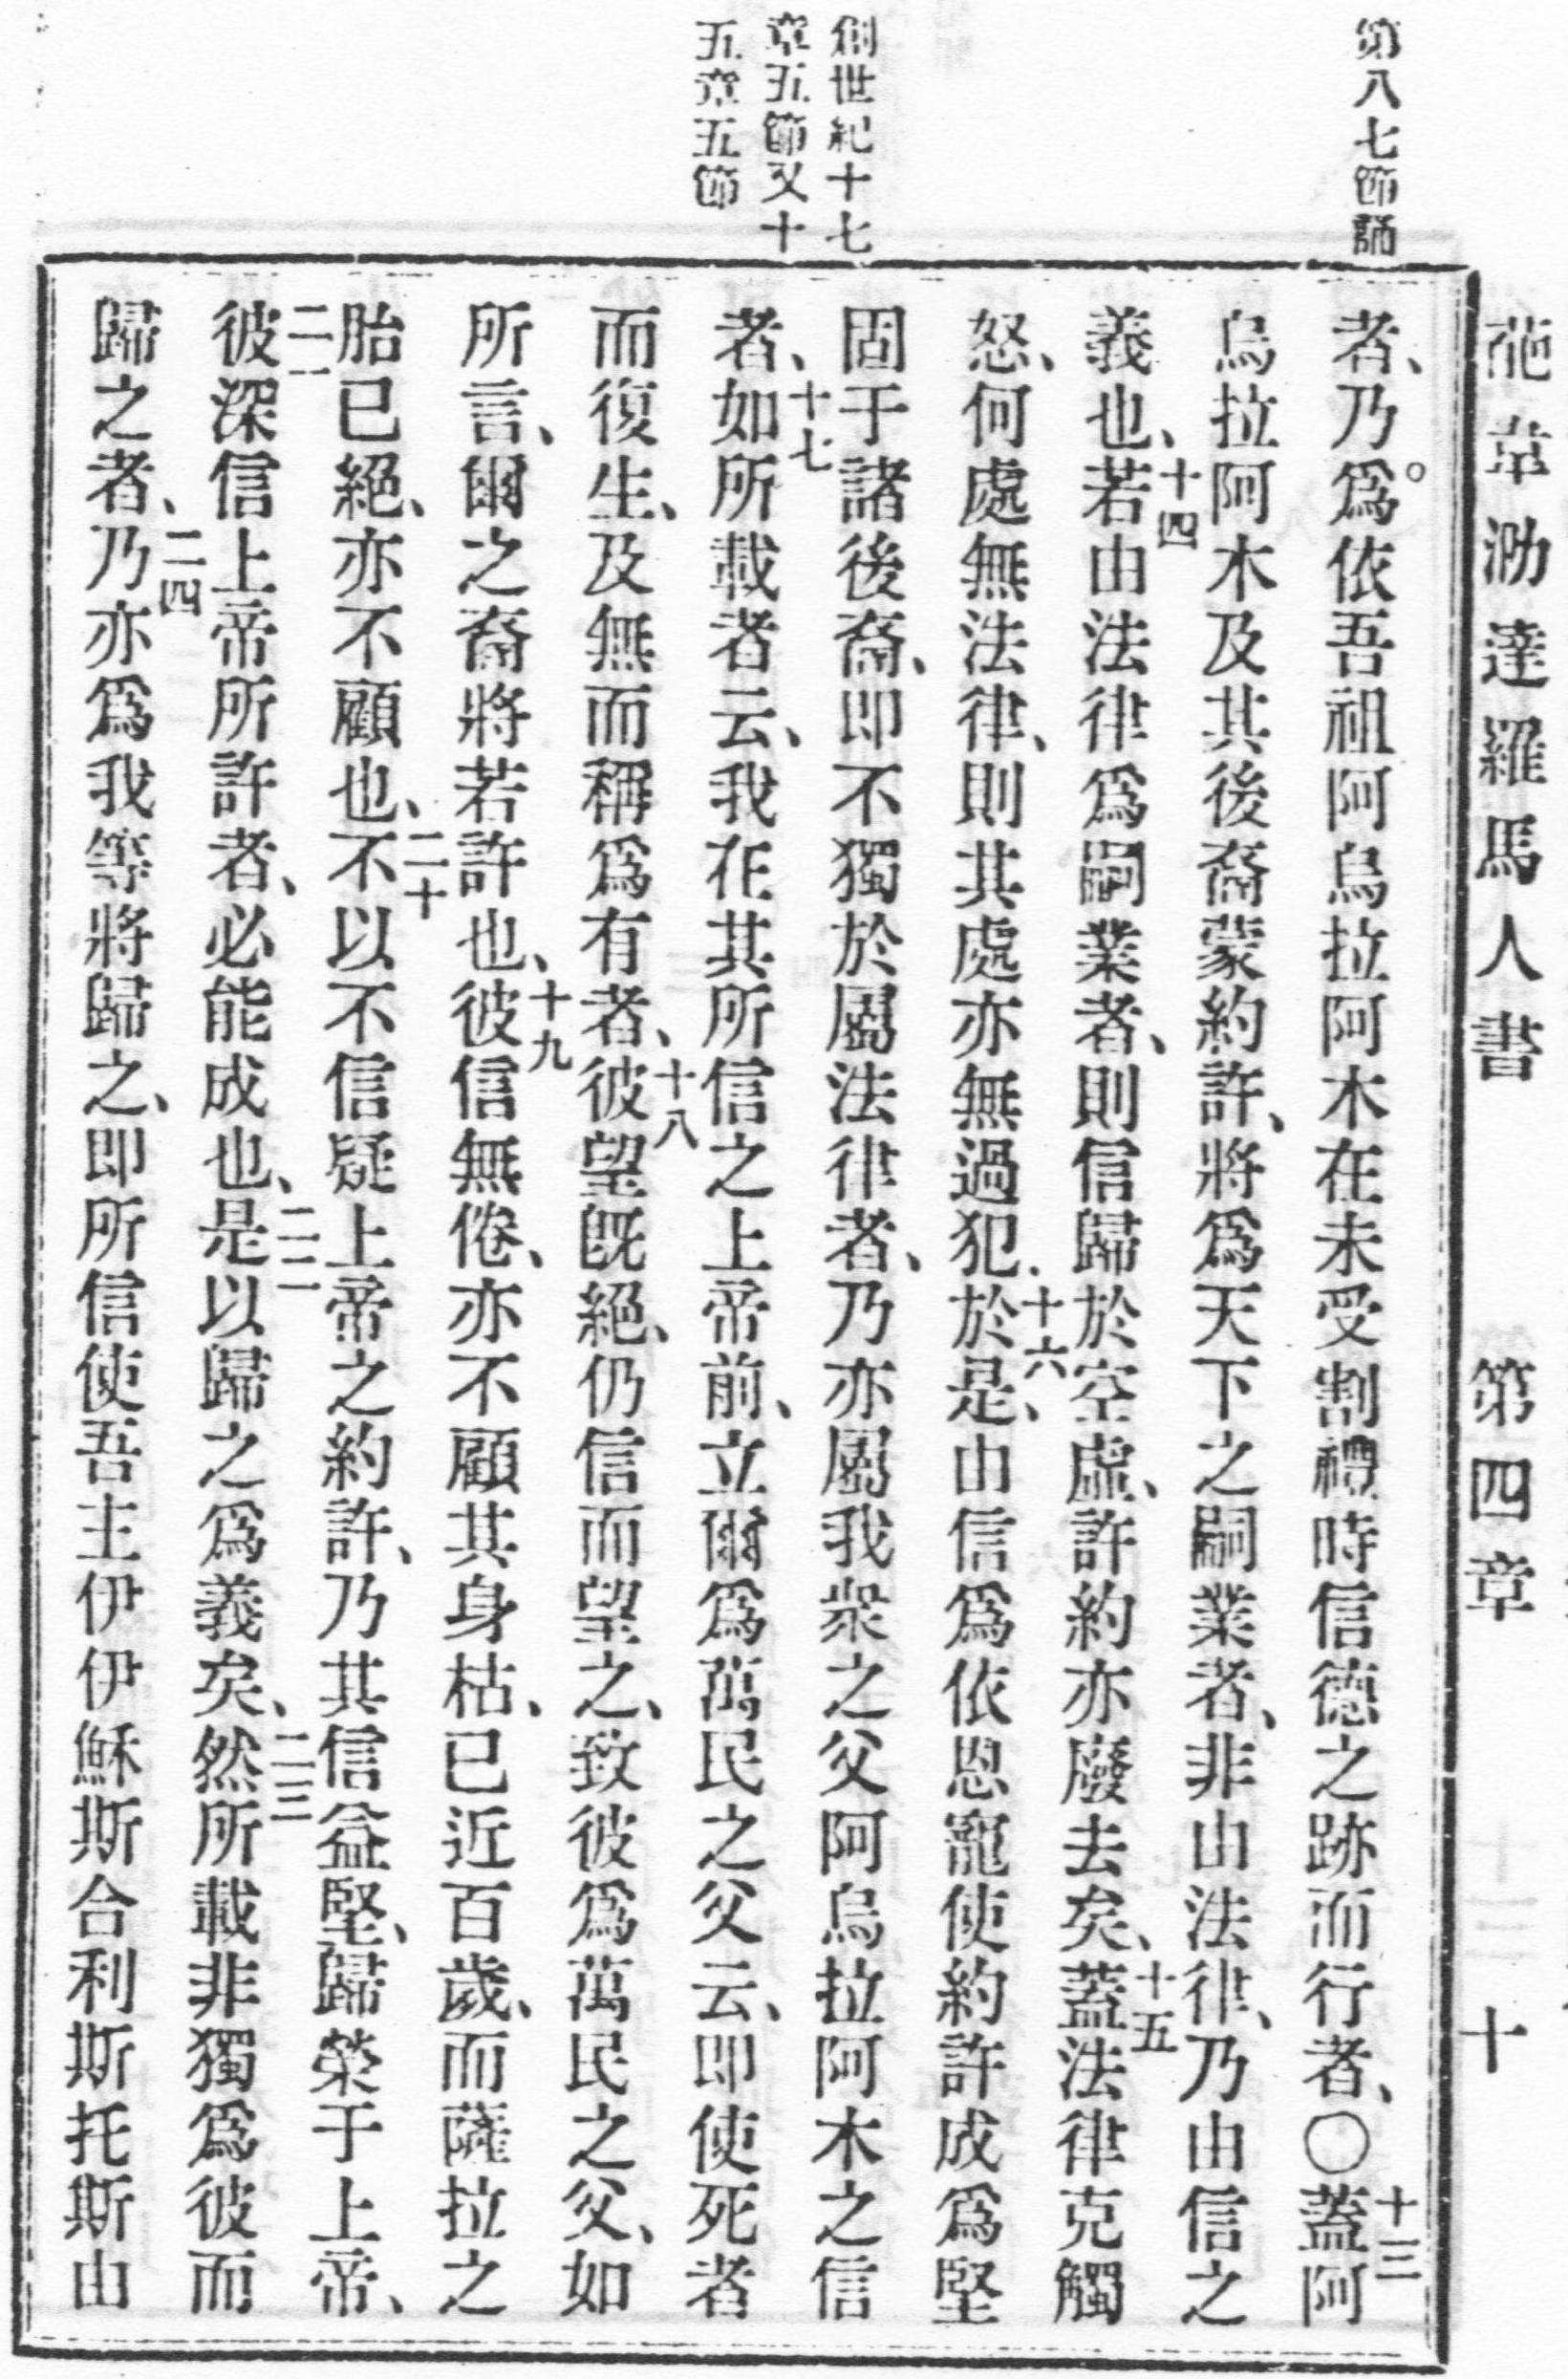 葩韋泐達羅馬人書 第四章 十
第八七節誦
創世紀十七
章五節又十
五章五節
者、乃爲。依吾祖阿烏拉阿木在未受割禮時信德之跡而行者、〇十三蓋阿
烏拉阿木及其後裔蒙約許、將爲天下之嗣業者、非由法律、乃由信之
義也、十四若由法律爲嗣業者、則信歸於空虛、許約亦廢去矣、十五蓋法律克觸
怒、何處無法律、則其處亦無過犯、十六於是、由信爲依恩寵使約許成爲堅
固于諸後裔、即不獨於屬法律者、乃亦屬我衆之父阿烏拉阿木之信
者、十七如所載者云、我在其所信之上帝前、立爾爲萬民之父云、即使死者
而復生、及無而稱爲有者、十八彼望旣絕、仍信而望之、致彼爲萬民之父、如
所言、爾之裔將若許也、十九彼信無倦、亦不顧其身枯、已近百歲、而薩拉之
胎已絕、亦不顧也、二十不以不信疑上帝之約許、乃其信益堅、歸榮于上帝、
二一彼深信上帝所許者、必能成也、二二是以歸之爲義矣、二三然所載非獨爲彼而
歸之者、二四乃亦爲我等將歸之、即所信使吾主伊伊穌斯合利斯托斯由